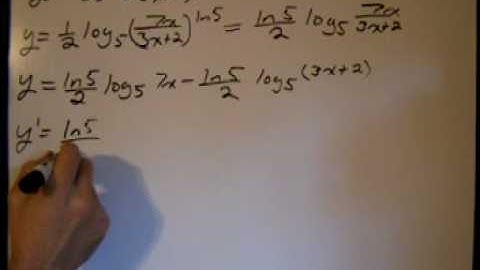 y = 1/2 log₅(7x/(3x+2))^ln5 = ln5/2 log₅ 7x/(3x+2)
y = ln5/2 log₅ 7x - ln5/2 log₅ (3x+2)
y' = ln5